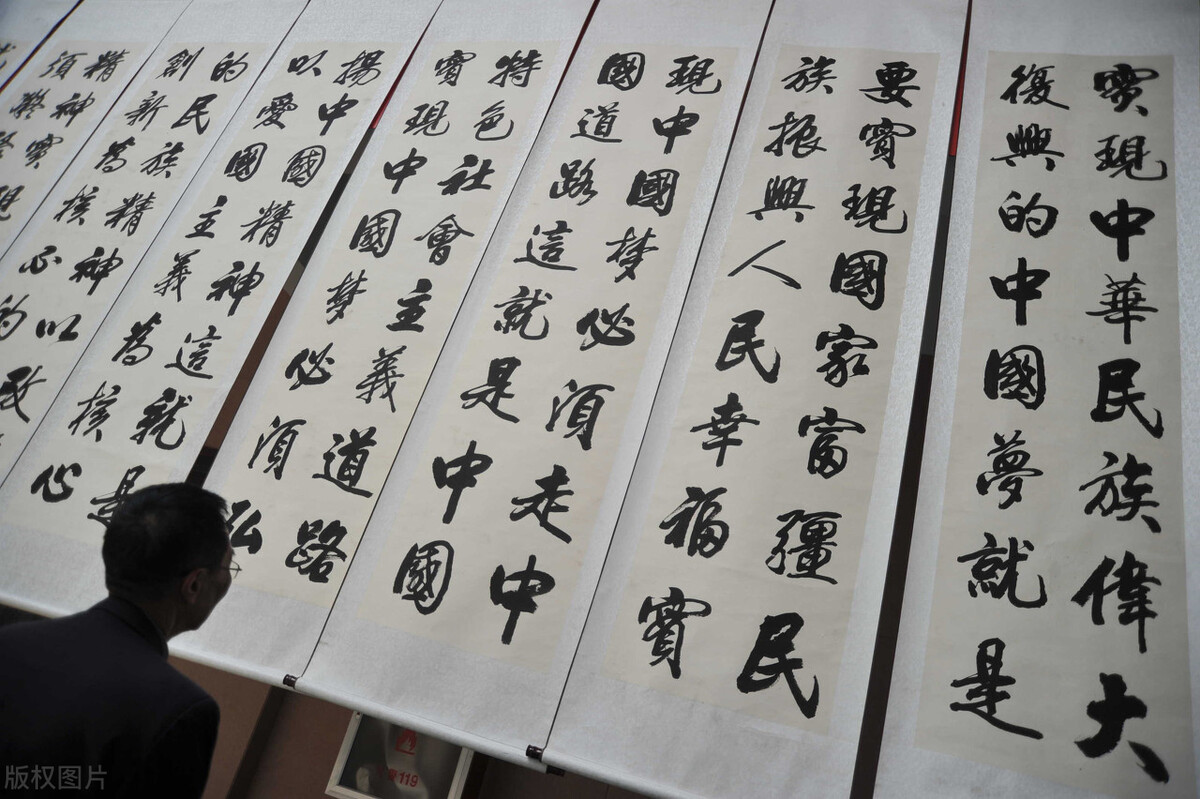 實現中華民族偉大
復興的中國夢就是
要實現國家富疆民
族振興人民幸福實
現中國梦必須走中
國道路這就是中國
特色社會主義道路
實現中國梦必須弘
揚中國精神這就是
以愛國主義為核心
的民族精神以改
創新為核心的
精神實現
須凝
119
版权图片